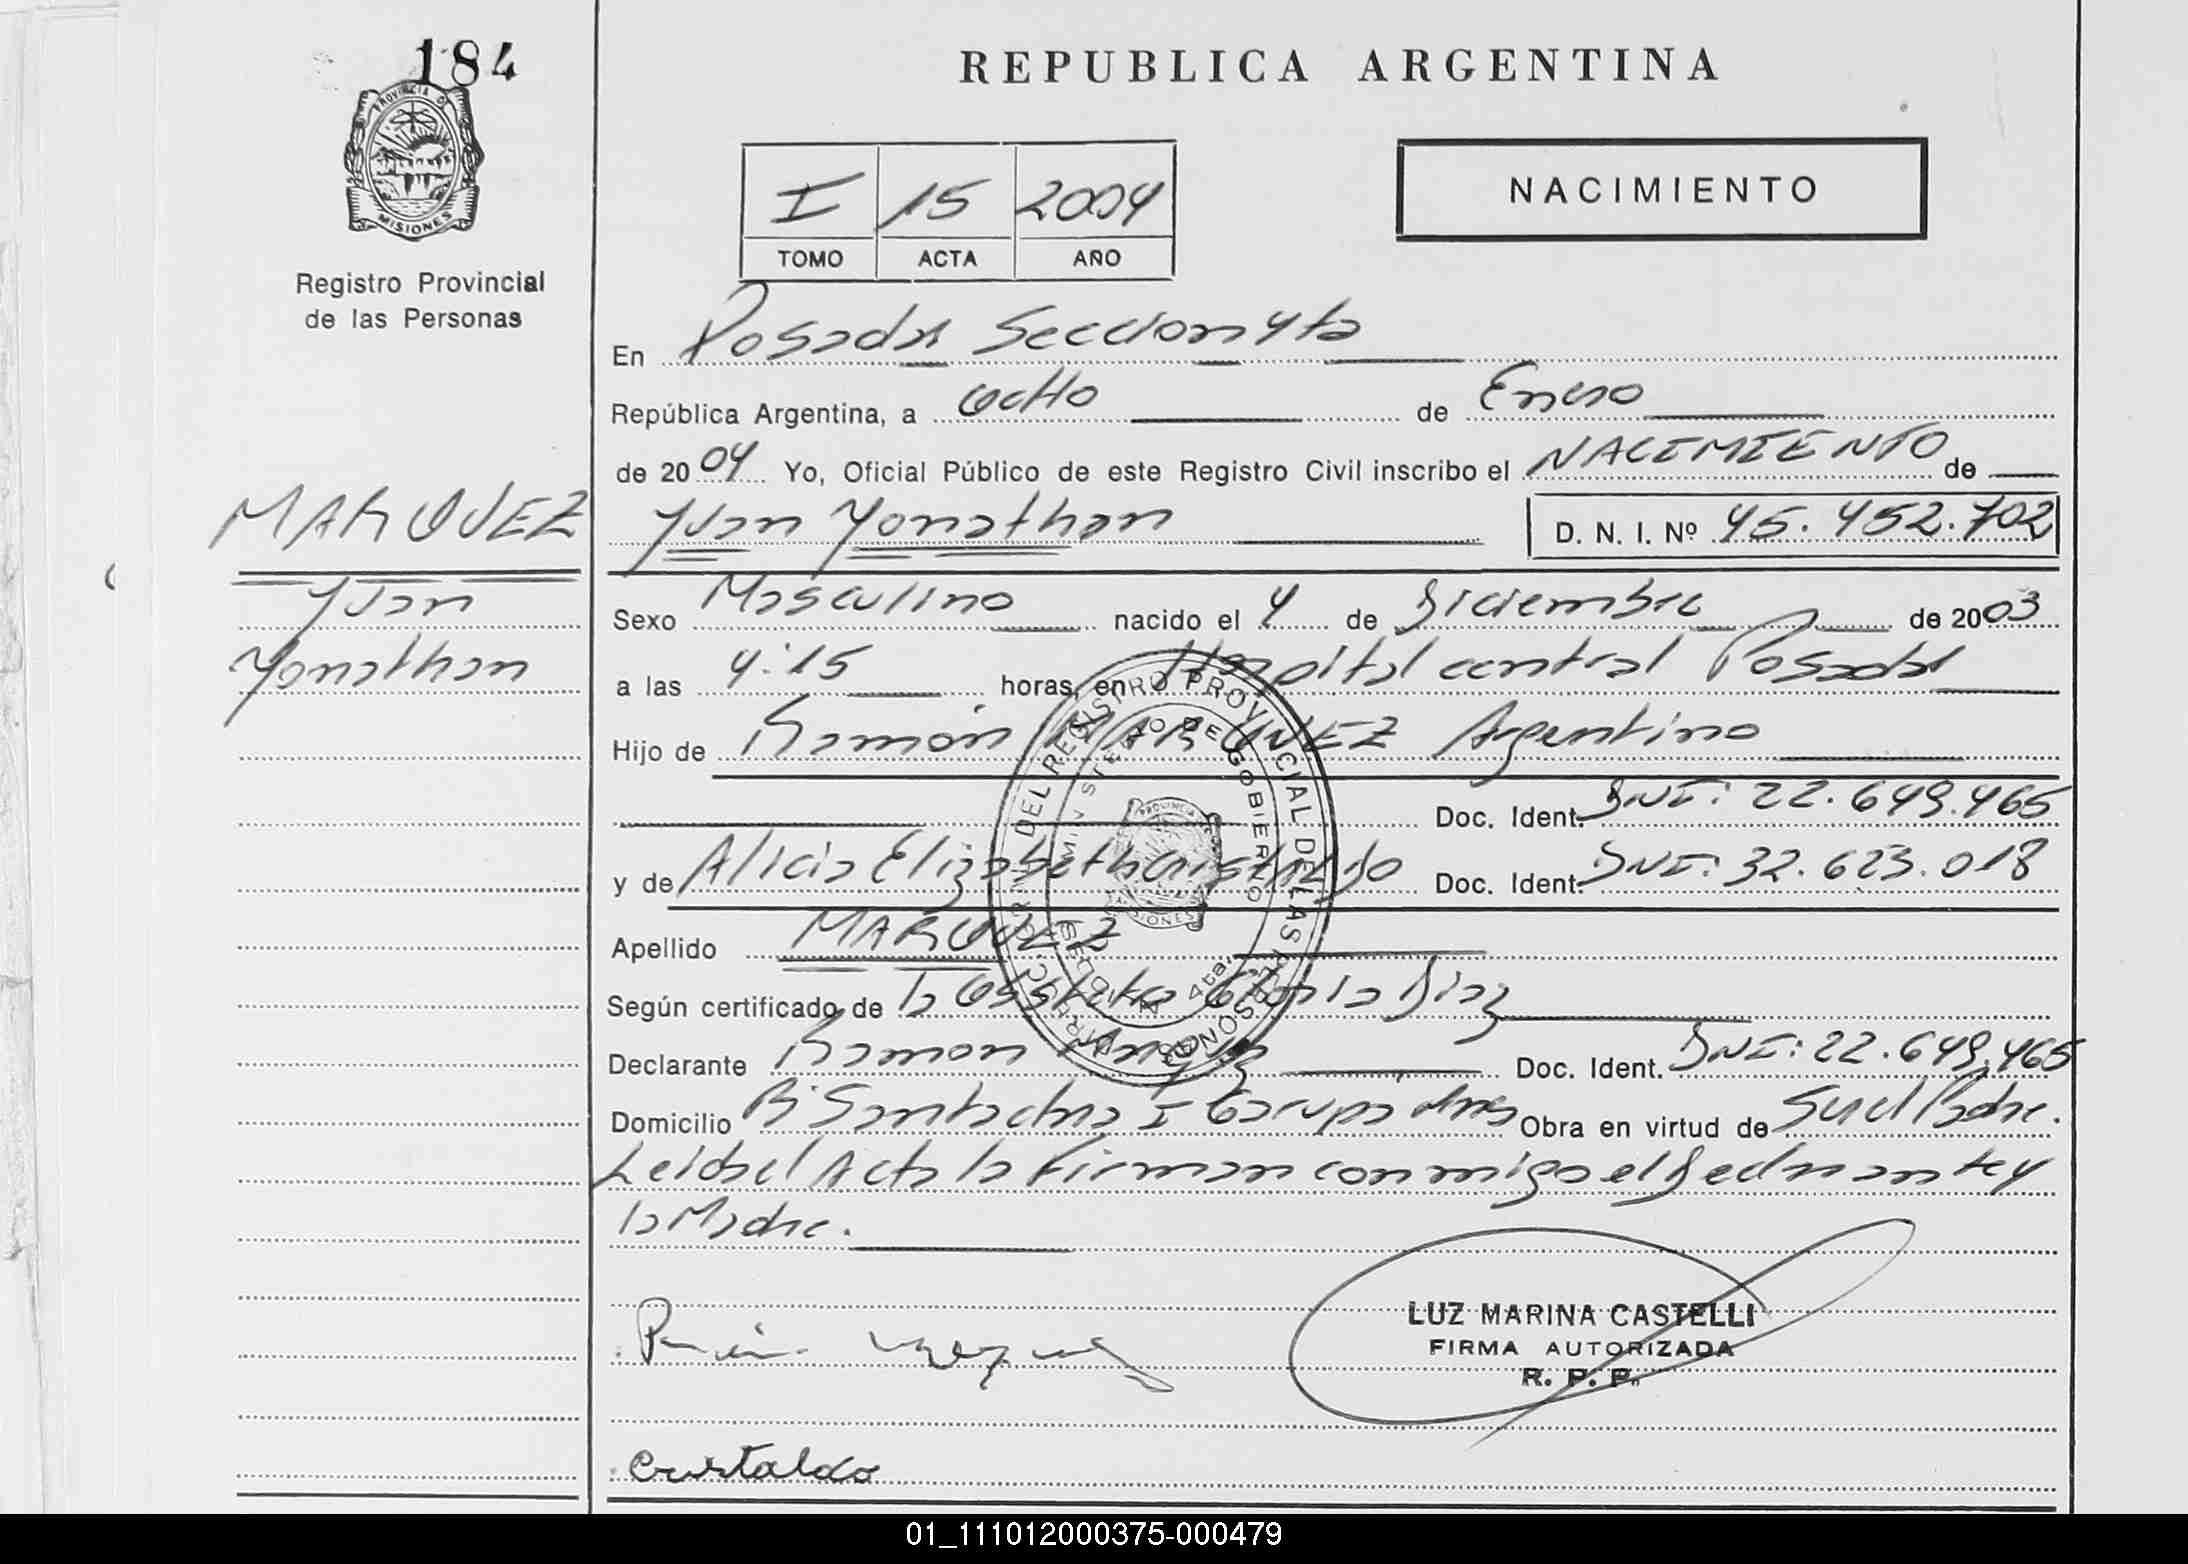 184
PROVINCIA DE
MISIONES
Registro Provincial
de las Personas
MARQUEZ
Yvan
Yonathan
REPUBLICA ARGENTINA
I 15 2004
TOMO ACTA AÑO
NACIMIENTO
En Posadas Seccion 4ta
República Argentina, a Ocho de Enero
de 2004 Yo, Oficial Público de este Registro Civil inscribo el NACIMIENTO de
Yvan Yonathan D. N. I. Nº 45.452.702
Sexo Masculino nacido el 4 de Diciembre de 2003
a las 4:15 horas, en Hospital central Posadas
Hijo de Ramón MARQUEZ Argentino
Doc. Ident. DNI: 22.649.465
y de Alicia Elizabeth Doc. Ident. DNI: 32.623.018
Apellido MARQUEZ
Según certificado de la Obstetra Diaz
Declarante Ramon Doc. Ident. DNI: 22.649.465
Domicilio Bº Santa I Garupa Mnes Obra en virtud de Ser el Padre.
Leida el Acta la Firman conmigo el y
la Madre.
REGISTRO PROVINCIAL DE LAS PERSONAS
MINISTERIO DE GOBIERNO
PROVINCIA
MISIONES
4ta.
LUZ MARINA CASTELLI
FIRMA AUTORIZADA
R. P. P.
01_111012000375-000479